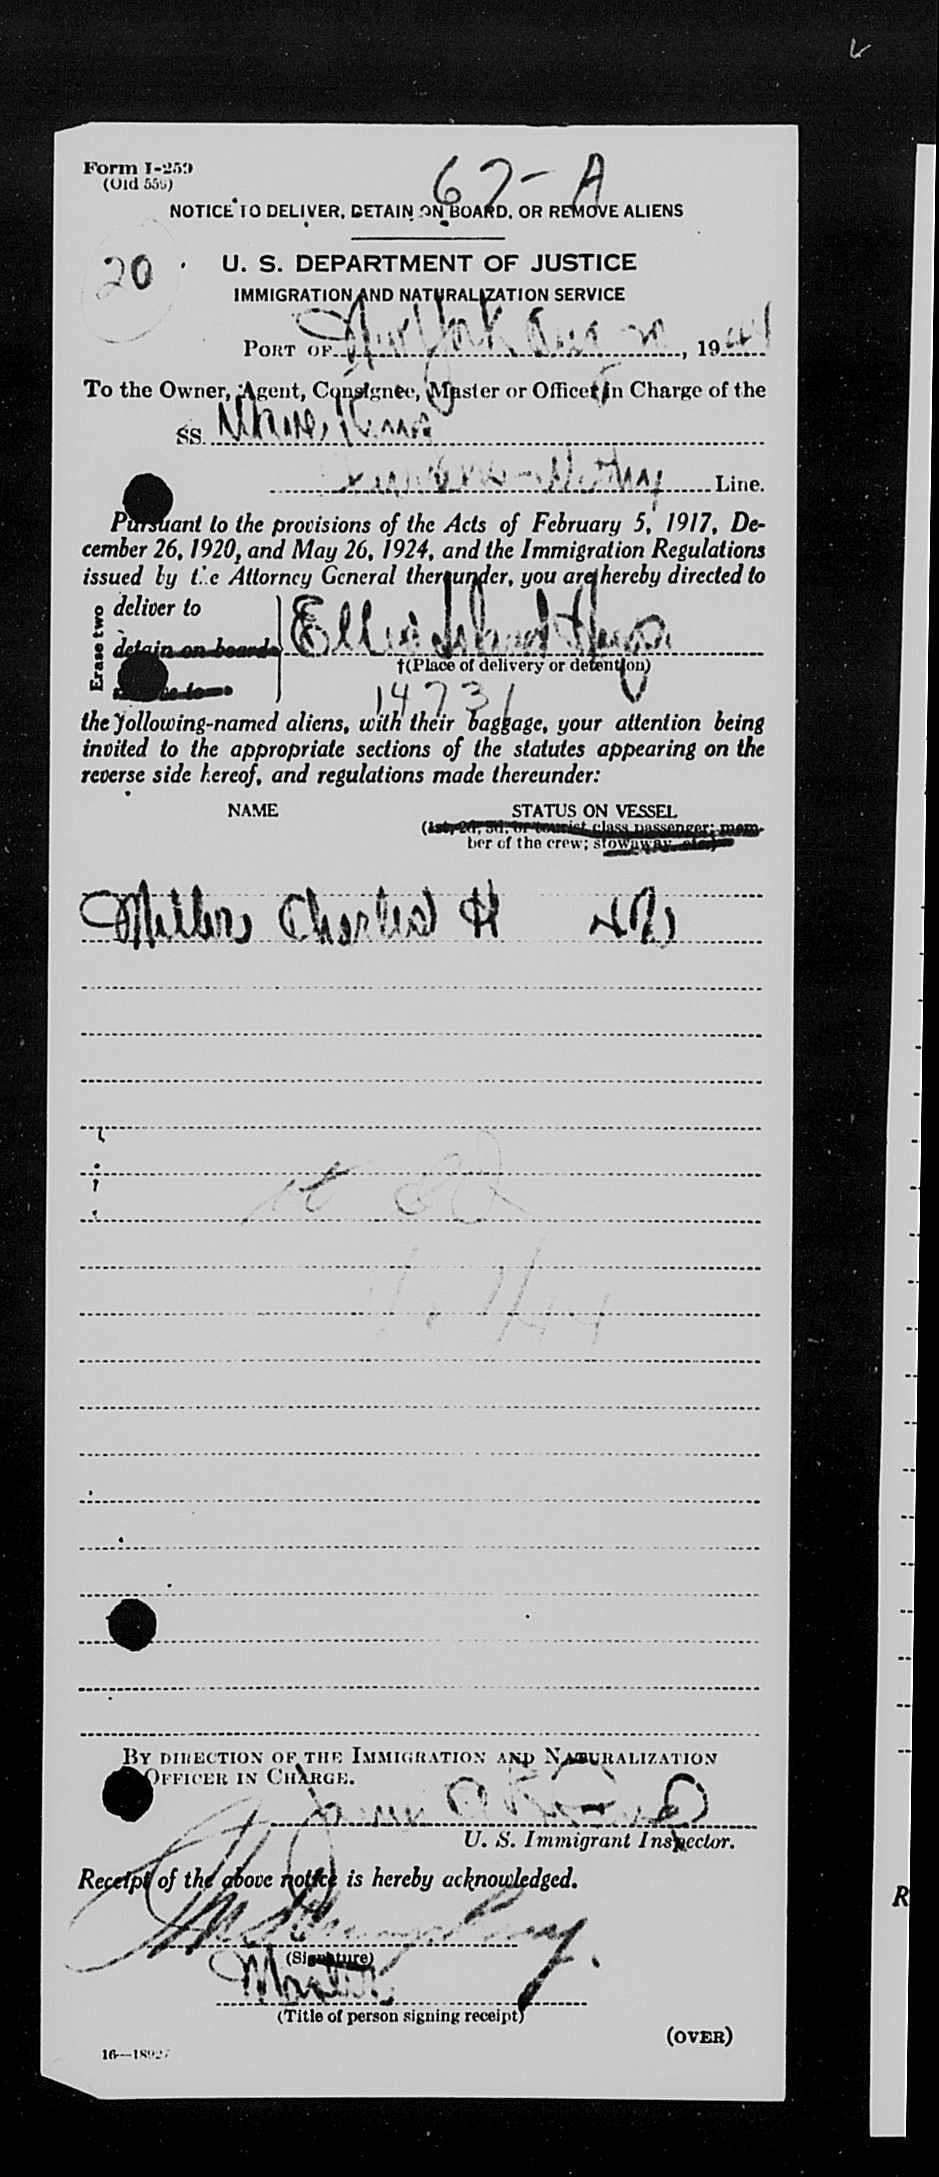 Form I-259
(Old 559)
67-A
NOTICE TO DELIVER, DETAIN ON BOARD, OR REMOVE ALIENS
20
U. S. DEPARTMENT OF JUSTICE
IMMIGRATION AND NATURALIZATION SERVICE
PORT OF New York Aug 20, 1944
To the Owner, Agent, Consignee, Master or Officer in Charge of the
SS.
Line.
Pursuant to the provisions of the Acts of February 5, 1917, De-
cember 26, 1920, and May 26, 1924, and the Immigration Regulations
issued by the Attorney General thereunder, you are hereby directed to
Erase two
deliver to
detain on board
Ellis Island
†(Place of delivery or detention)
14731
the following-named aliens, with their baggage, your attention being
invited to the appropriate sections of the statutes appearing on the
reverse side hereof, and regulations made thereunder:
NAME STATUS ON VESSEL
(1st, 2d, 3d, or tourist class passenger; mem-
ber of the crew; stowaway, etc.)
Charles H
BY DIRECTION OF THE IMMIGRATION AND NATURALIZATION
OFFICER IN CHARGE.
James
U. S. Immigrant Inspector.
Receipt of the above notice is hereby acknowledged.
(Signature)
Master
(Title of person signing receipt)
(OVER)
16—18927
R